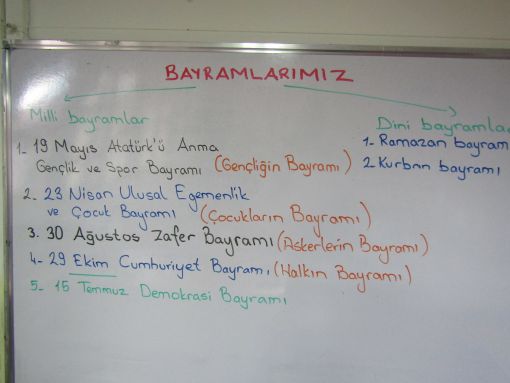 BAYRAMLARIMIZ
Milli bayramlar
1- 19 Mayıs Atatürk'ü Anma
Gençlik ve Spor Bayramı (Gençliğin Bayramı)
2. 23 Nisan Ulusal Egemenlik
ve Çocuk Bayramı (Çocukların Bayramı)
3. 30 Ağustos Zafer Bayramı (Askerlerin Bayramı)
4- 29 Ekim Cumhuriyet Bayramı (Halkın Bayramı)
5- 15 Temmuz Demokrasi Bayramı
Dini bayramla
1- Ramazan bayram
2. Kurban bayramı